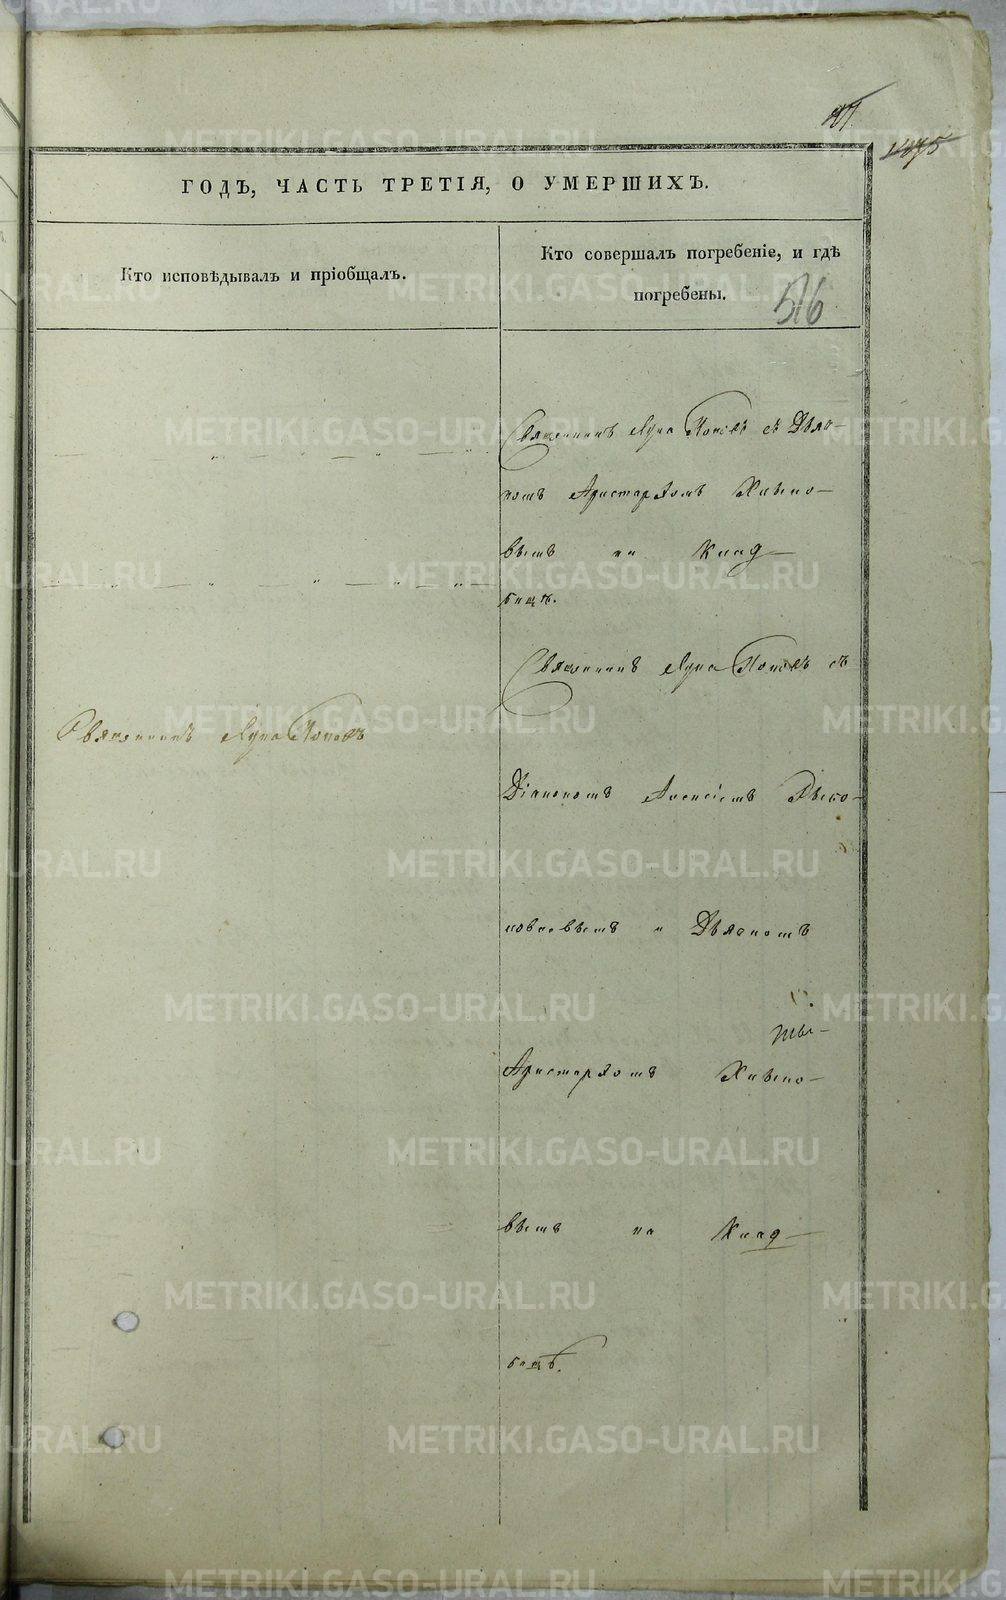 ГОДЪ, ЧАСТЬ ТРЕТІЯ, О УМЕРШИХЪ.
Кто исповѣдывалъ и пріобщалъ.
Кто совершалъ погребеніе, и гдѣ
погребены.
516
Священникъ Лука Поповъ съ Дьяч-
комъ Аристархомъ Хлѣпо-
вымъ на Клад-
бищѣ.
Священникъ Лука Поповъ съ
Священникъ Лука Поповъ
Діакономъ Алексіемъ
и Дьячкомъ
Аристархомъ Хлѣпо-
вымъ на Клад-
бищѣ.
METRIKI.GASO-URAL.RU